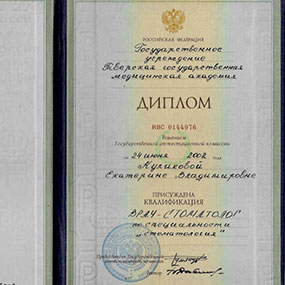 РОССИЙСКАЯ ФЕДЕРАЦИЯ
Государственное
учреждение
Тверская государственная
медицинская академия
ДИПЛОМ
ИВС 0144976
Решением
Государственной аттестационной комиссии
от 24 июня 2002 года
Куликовой
Екатерине Владимировне
ПРИСУЖДЕНА
КВАЛИФИКАЦИЯ
ВРАЧ-СТОМАТОЛОГ
по специальности
„стоматология"
Председатель Государственной
аттестационной комиссии
Ректор